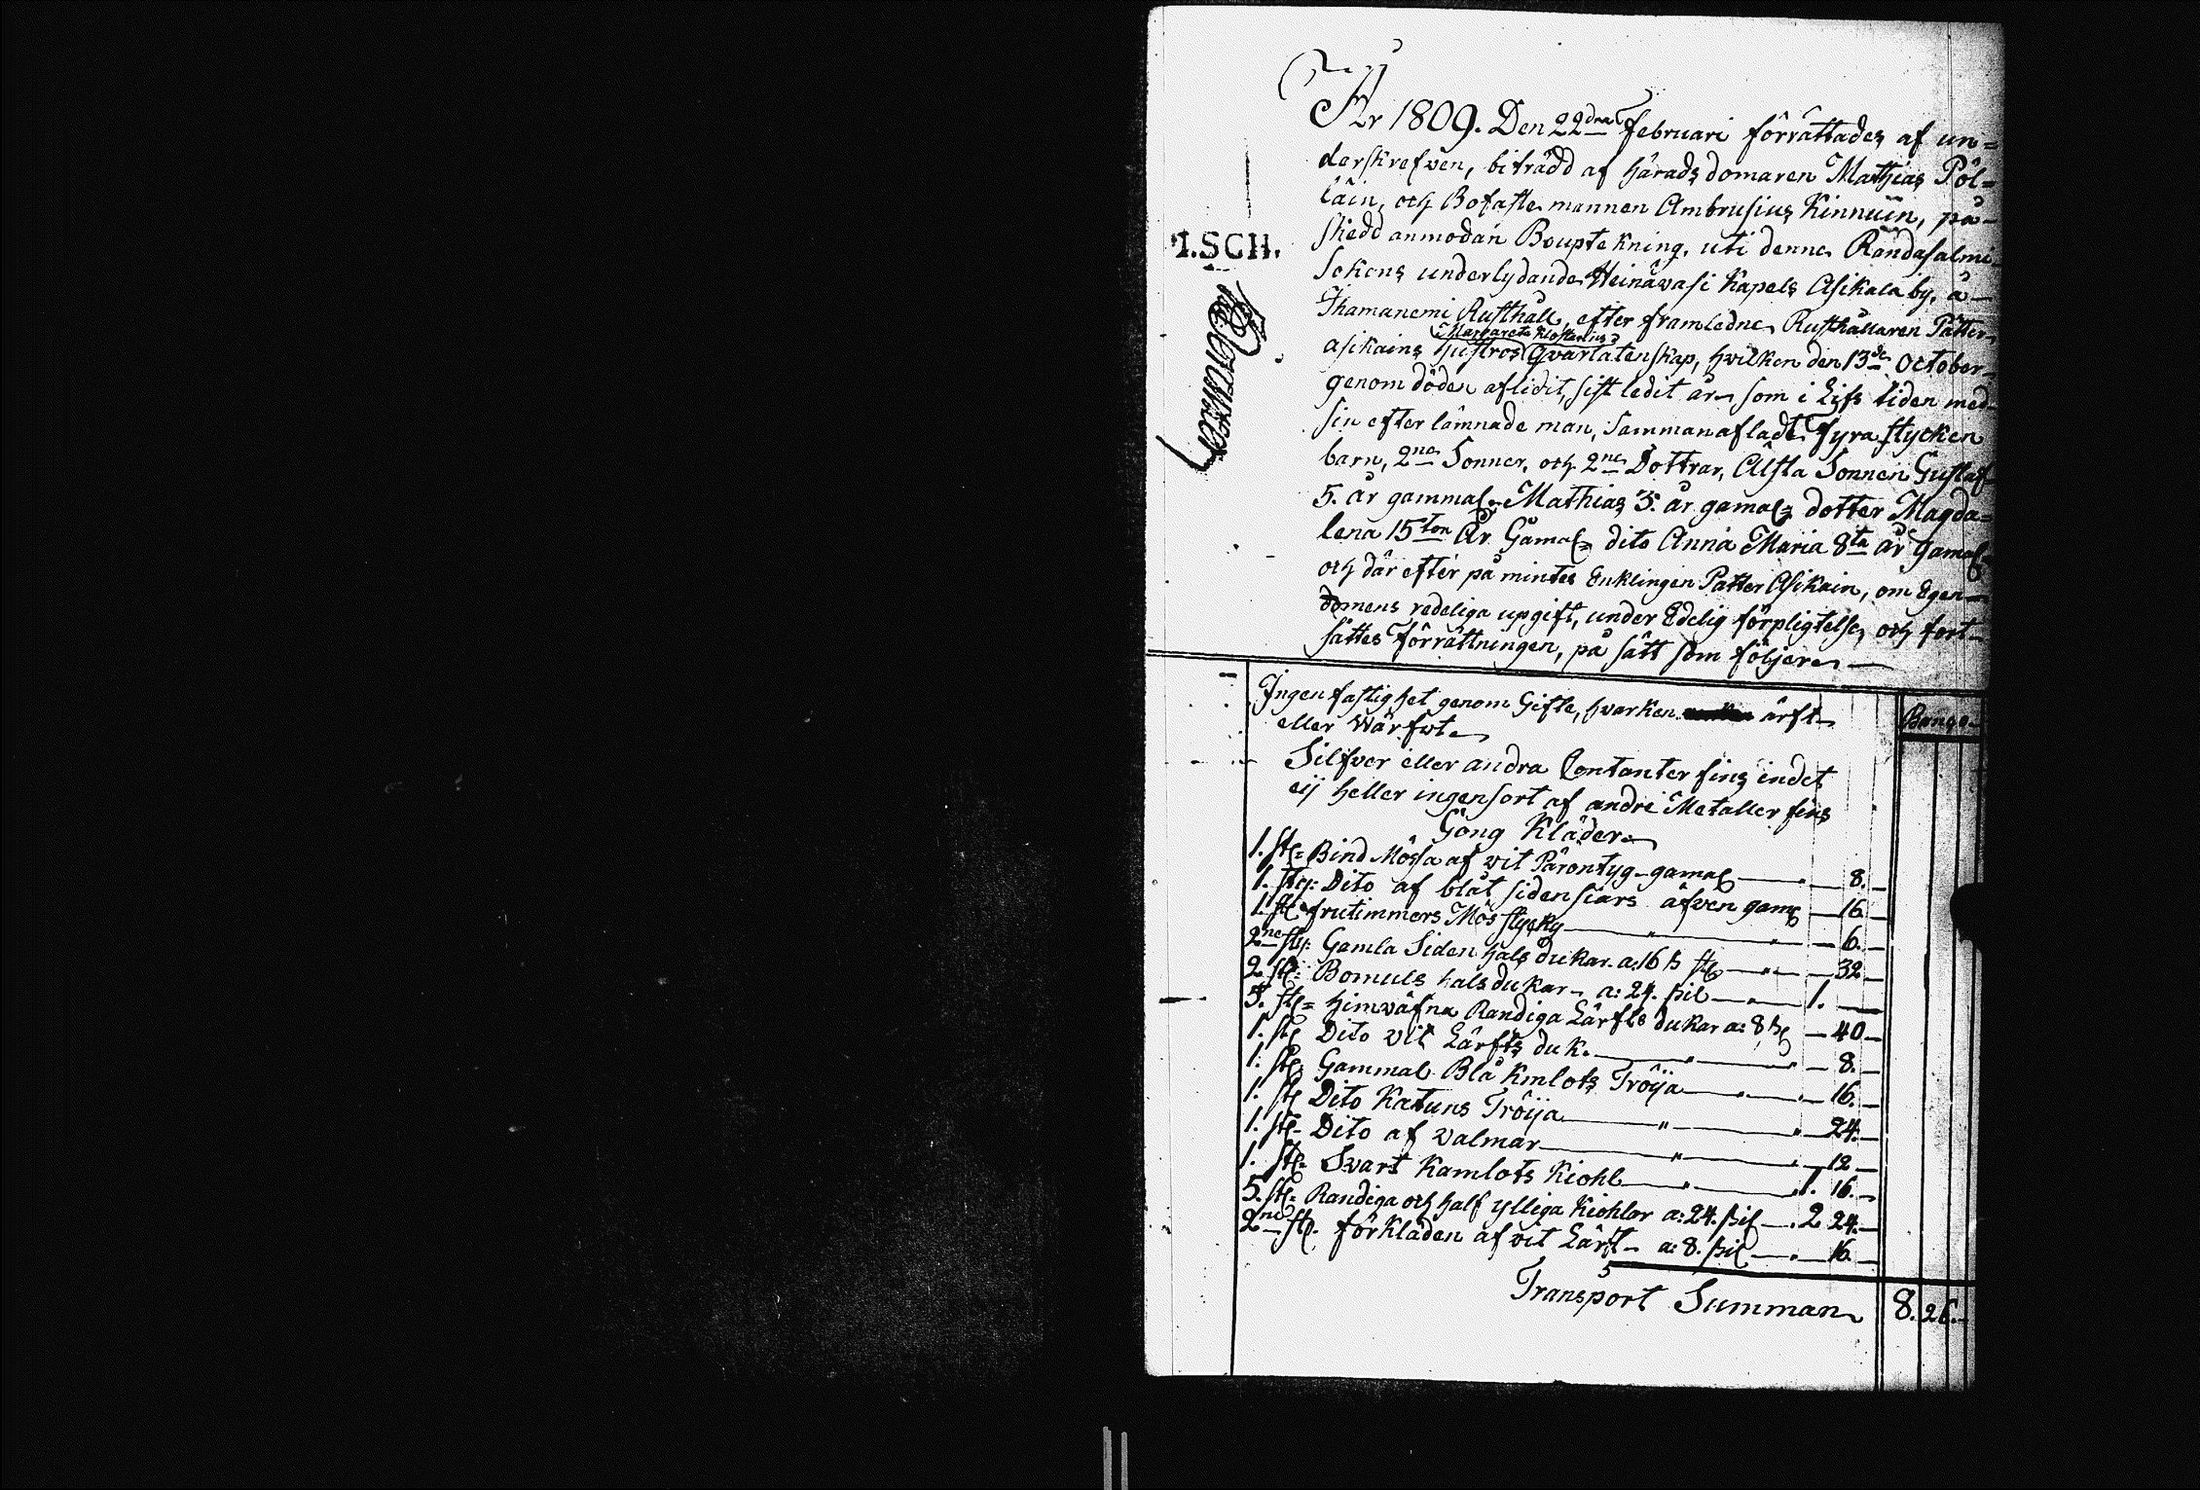 År 1809. Den 22dra Februari förrättades af un=
derskrefwen, biträdd af härads domaren Mathias Pöl=
läin, och Bofaste mannen Ambrusius Kinnuin, på-
skedd anmodan Bouptekning, uti denne Randasalmi
Sokens underlydande Heinäwasi Kapels Asikala by, å-
Ihamaniemi Rusthåll, efter framledne Rusthållaren Pätter
Margareta
asikains hustros qvarlatenskap, hwilken den 13de October
genom döden aflidit, sist ledit år, som i Lifs tiden med
sin efter lämnade man, Sammanaflade Fyra stycken
barn, 2ne Sonner, och 2ne Dottrar, Älsta Sonnen Gustaf
5. år gammal, Mathias 3. år gamal, dotter Magda=
lena 15ton År Gamal, dito Anna Maria 8ta år gamal
och där efter på mintes Enklingen Patter Asikain, om Egen-
domens redeliga upgift, under Edelig förpligtelse, och fort-
sättes Förrättningen, på sätt som följer
I.SCH.
Ingen fastighet genom Gifte, hwarken ärft
eller Wärfwt
Bango
Silfwer eller andra Contanter fins indet
eij heller ingen sort af andre Metaller fins
Gång Kläder
1. st: Bind Mössa af wit Pärontyg gamal 8.
1. st: Dito af blåt siden siars äfwen gam: 16
1. st: fruntimmers Mös stycky 6.
2ne st: Gamla Siden hals dukar a. 16 s st 32
2. st: Bomuls halsdukar a: 24. skil 1.
5. st: himwäfna Randiga Lärfts dukar a: 8 s 40
1. st: Dito wit Lärfts duk. 8.
1. st: Gammal Blå Kmlots Tröija 16.
1. st: Dito Katuns Tröija 24.
1. st: Dito af valmar 12
1. st: Svart Kamlots Kiohl 1. 16.
5. st: Randiga och half ylliga Kiohlar a: 24. skil 2 24.
2ne st: förkläden af wit Lärft a: 8. skil 16.
Transport Summan 8. 26.